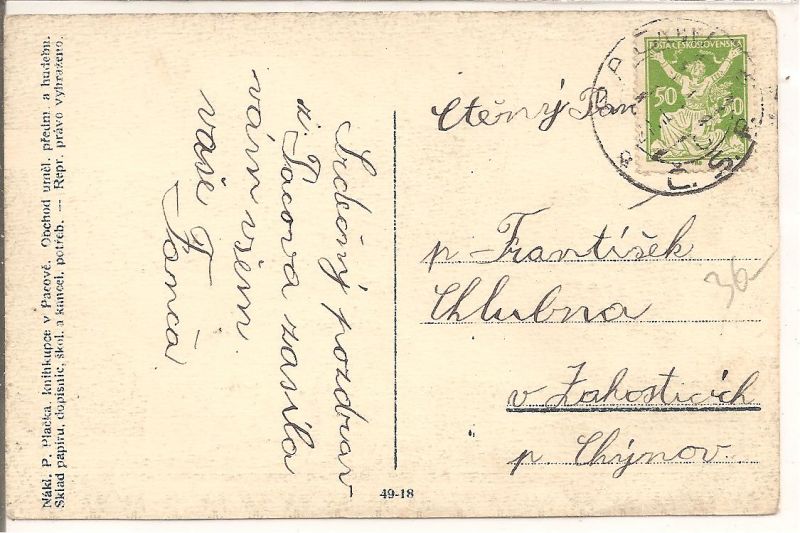 Nákl. P. Plačka, knihkupce v Pacově. Obchod uměl. předm. a hudebn.
Sklad papíru, dopisnic, škol. a kancel. potřeb. — Repr. právo vyhraženo.
Srdečný pozdrav
z Pacova zasílá
vám všem
vaše
49-18
Ctěný Pan
POŠTA ČESKOSLOVENSKÁ
50 50
p. František
Chlubna
v Záhosticích
p. Chýnov.
36